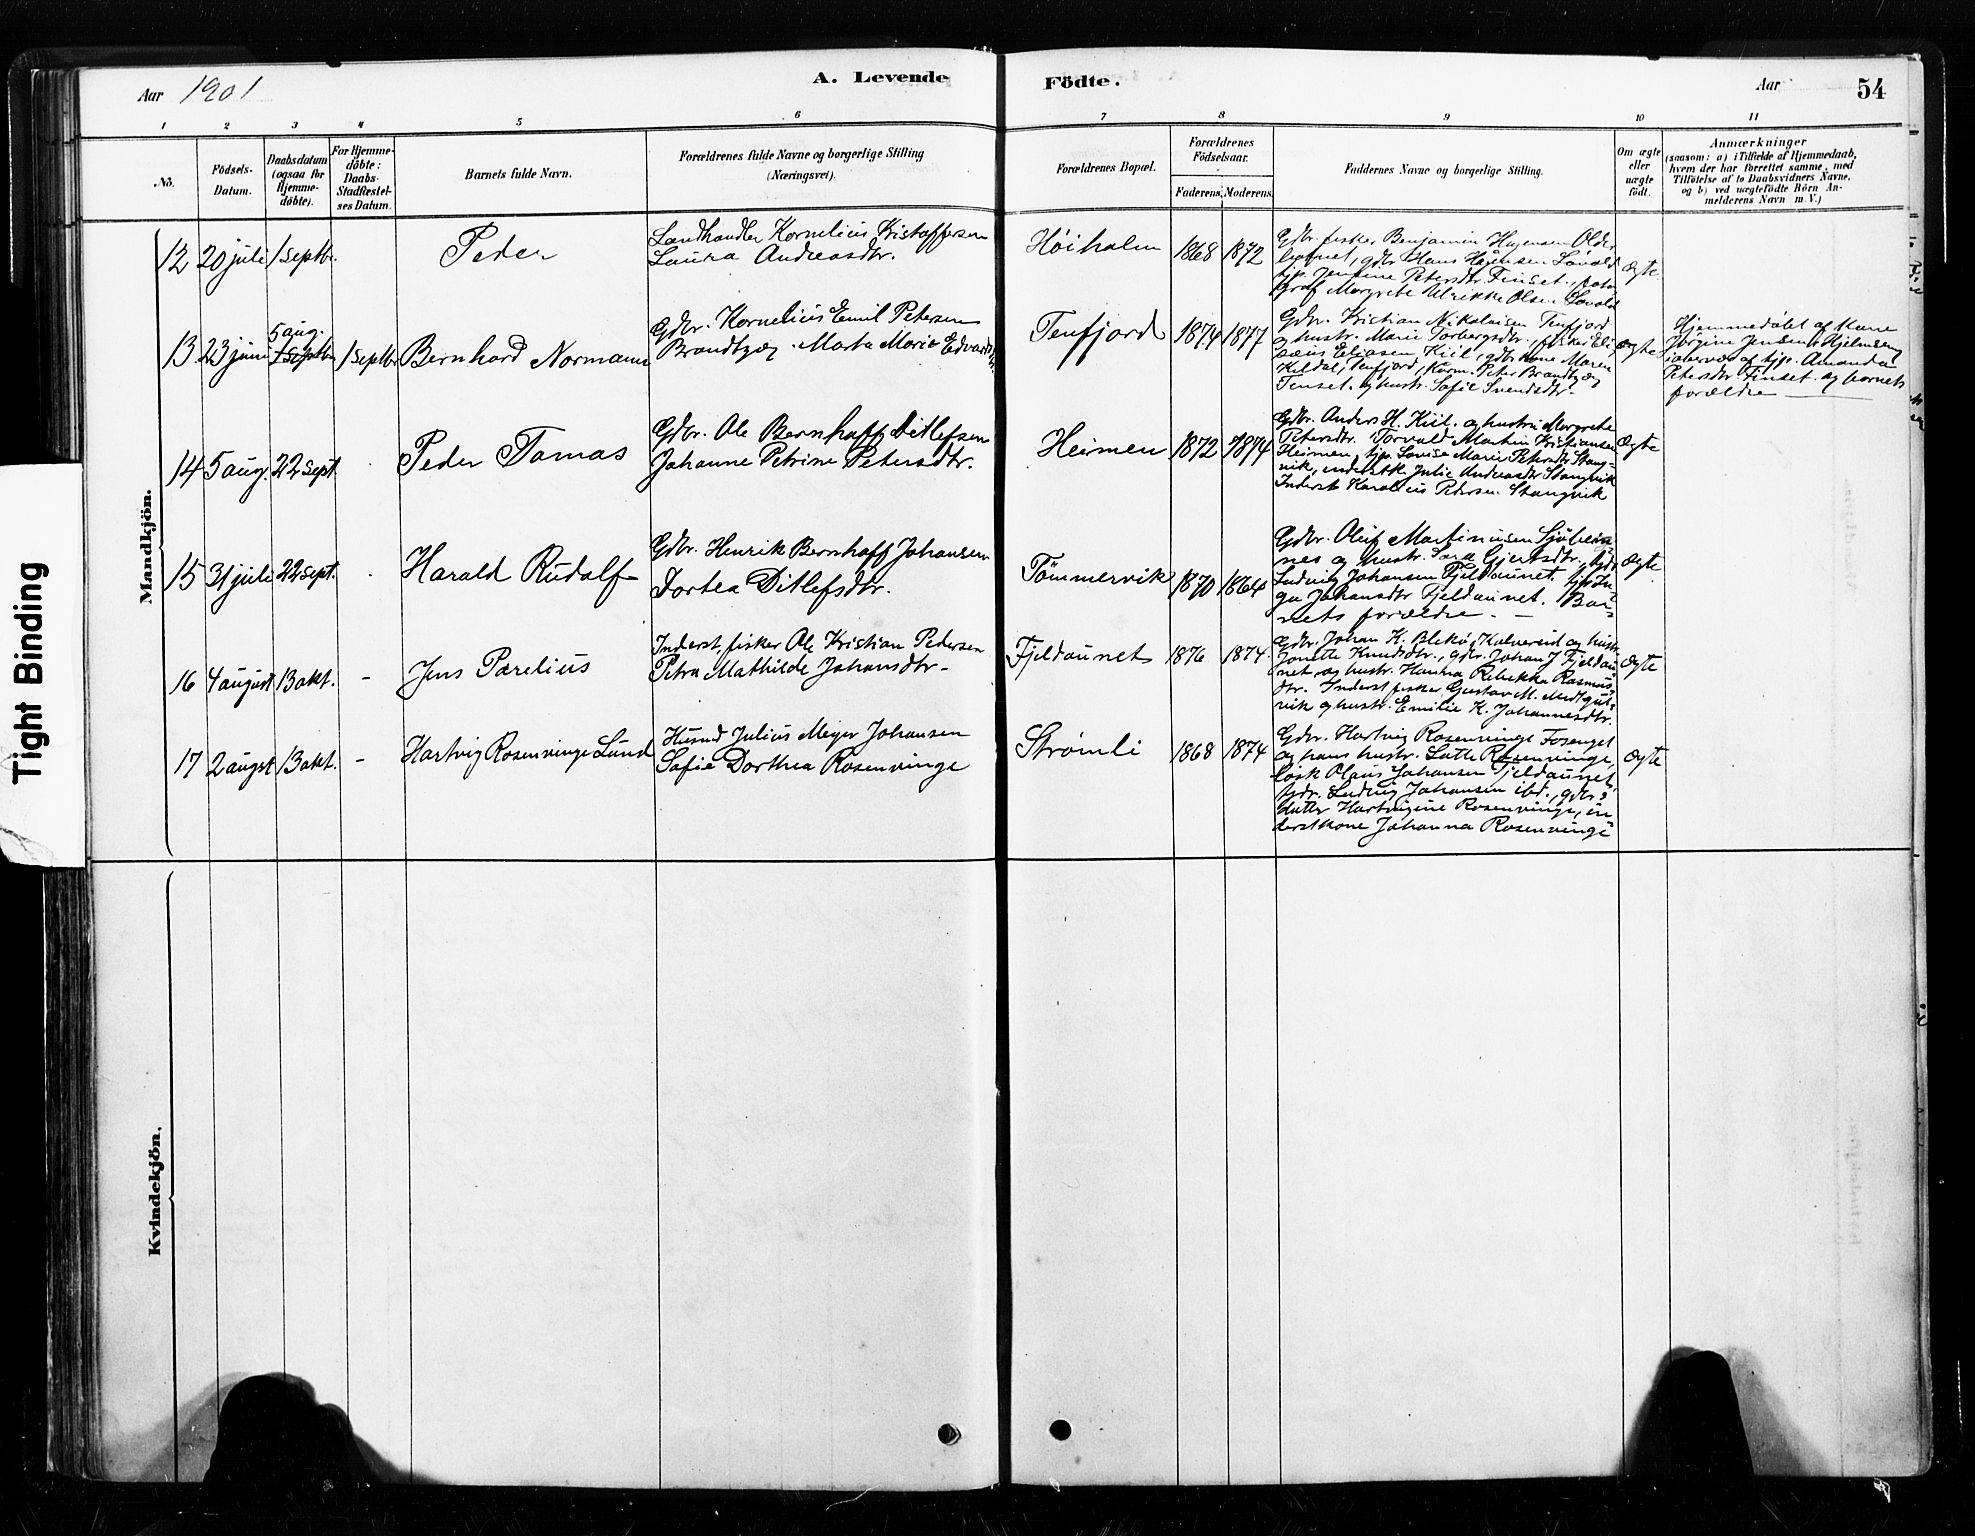 Tight Binding
Aar 1901
A. Levende
Födte.
Aar
54
1 2 3 4 5 6 7 8 9 10 11
No.
Födsels-
Datum.
Daabsdatum
(ogsaa for
Hjemme-
döbte).
For Hjemme-
döbte:
Daabs-
Stadfæstel-
ses Datum.
Barnets fulde Navn.
Forældrenes fulde Navne og borgerlige Stilling
(Næringsvei).
Forældrenes Bopæl.
Forældrenes
Födselsaar.
Faderens. Moderens.
Faddernes Navne og borgerlige Stilling.
Om ægte
eller
uægte
født.
Anmærkninger
(saasom: a) i Tilfælde af Hjemmedaab,
hvem der har forrettet samme, med
Tilföielse af to Daabsvidners Navne.
og b) ved uægtefödte Börn An-
melderens Navn m. V.)
Mandkjön.
12 20 juli 1 septbr. Peder
Landhandler Kornelius Kristoffersen
Laura Andreasdtr.
Høiholm 1868 1872
Gdbr. fisker Benjamin Hagensen Older
gdbr Hans Hagensen Løvold
tjp. Jensine Petersdtr Finset, foto
graf Margrete Ulrikke Olsen Løvold
Ægte
13 23 juni
5 aug.
1 septbr
1 septbr Bernhard Normann
Gdbr. Kornelius Emil Petersen
Brandtzæg Marta Marie Edvardsdtr
Tenfjord 1874 1877
Gdbr. Kristian Nikolaisen Tenfjord
og hustr. Marie Torbergsdtr., fisker Eli-
sæus Eliasen Kiil, gdbr kone Maren
Kildal, Tenfjord, Kårm. Peter Brandtzæg
Tenset. og hustr. Sofie Svendsdtr.
Ægte
Hjemmedøbt af Kone
Jørgine Jensen Hjelmseng
i overvær af tjp. Amanda
Petersdtr Finset og barnets
forældre
14 5 aug. 22 sept. Peder Tomas
Gdbr. Ole Bernhoff Ditlefsen
Johanne Petrine Petersdtr.
Heimen 1872 1874
Gdbr. Anders H. Kiil. og hustru Margrete
Petersdtr. Torvald Martin Kristiansen
Heimen, tjp. Lovise Marie Petersdtr Stang-
vik, inderstk. Julie Andreasdtr Stangvik
Inderst Karolius Pedersen Stangvik
Ægte
15 31 juli 22 sept. Harald Rudolf
Gdbr. Henrik Bernhoff Johansen
Dortea Ditlefsdtr.
Tömmervik 1870 1864
Gdbr. Oluf Martinusen Sjöbeia-
nes og hustr. Sara Gjertsdtr, tjdr
Ludvig Johansen Fjeldaunet. tjp In-
ga Johansdtr Fjeldaunet. Bar-
nets forældre
Ægte
16 4 august 13 okt. - Jens Parelius
Inderst, fisker Ole Kristian Pedersen
Petra Mathilde Johansdtr
Fjeldaunet 1876 1874
Gdbr. Johan K. Blekø, Kalversid og hustr.
Jonette Knudsdtr., gdbr. Johan J Fjeldau-
net og hustr. Hanna Rebekka Rasmus-
dtr. Inderst fisker Gustav M. Medtgul-
vik og hustr. Emilie K. Johannesdtr.
Ægte
17 2 augst 13 okt. - Hartvig Rosenvinge Lund
Husmd Julius Meyer Johansen
Safie Dorthea Rosenvinge
Strømli 1868 1874
Gdbr. Hartvig Rosenvinge Fosenget
og hans hustr. Lotte Rosenvinge,
løsk Olaus Johansen Fjeldaunet,
tjdr. Ludvig Johansen ibd., gdbr-
datter Hartvigine Rosenvinge, in-
derstkone Johanna Rosenvinge
Ægte
Kvindekjön.